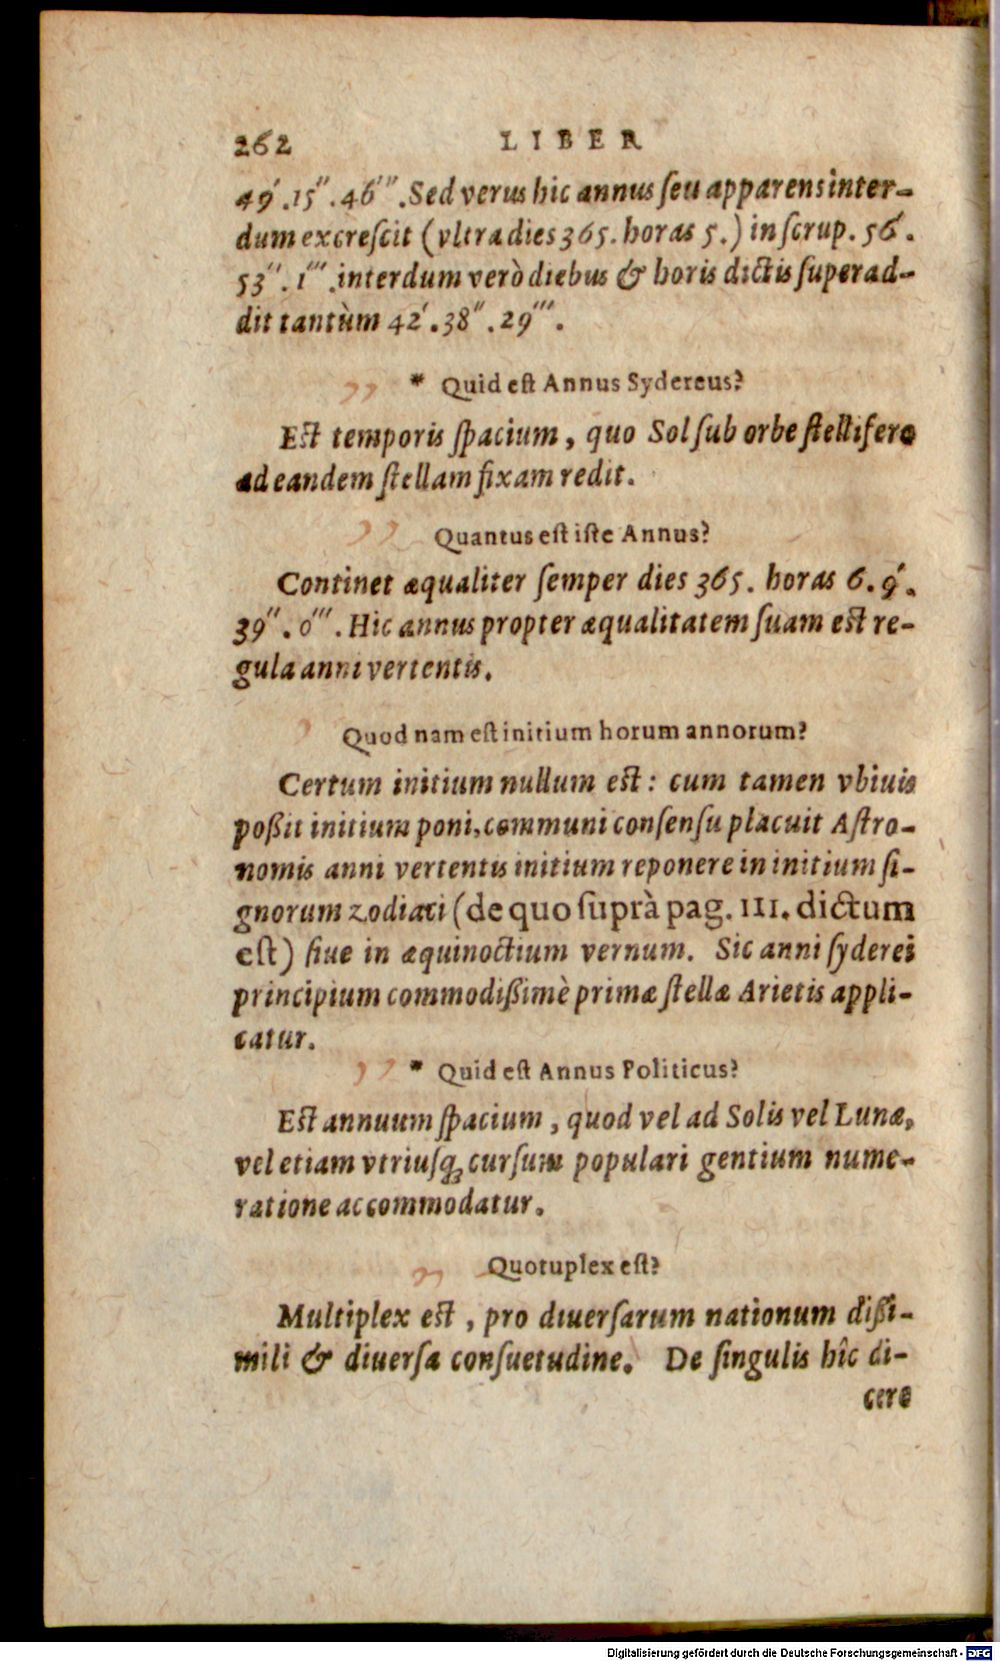 262 LIBER
49′.15″.46‴. Sed verus hic annus ſeu apparens inter-
dum excreſcit (vltra dies 365. horas 5.) in ſcrup. 56′.
53″. 1‴. interdum verò diebus & horis dictis ſuperad-
dit tantùm 42′. 38″. 29‴.
* Quid eſt Annus Sydereus?
Eſt temporis ſpacium, quo Sol ſub orbe ſtellifero
ad eandem ſtellam fixam redit.
Quantus eſt iſte Annus?
Continet æqualiter ſemper dies 365. horas 6. 9′.
39″. 0‴. Hic annus propter æqualitatem ſuam eſt re-
gula anni vertentis.
Quod nam eſt initium horum annorum?
Certum initium nullum eſt: cum tamen vbiuis
poßit initium poni, communi conſenſu placuit Aſtro-
nomis anni vertentis initium reponere in initium ſi-
gnorum zodiaci (de quo ſuprà pag. 111. dictum
eſt) ſiue in æquinoctium vernum. Sic anni ſyderei
principium commodißimè primæ ſtellæ Arietis appli-
catur.
* Quid eſt Annus Politicus?
Eſt annuum ſpacium, quod vel ad Solis vel Lunæ,
vel etiam vtriusq; curſum populari gentium nume-
ratione accommodatur.
Quotuplex eſt?
Multiplex eſt, pro diuerſarum nationum dißi-
mili & diuerſa conſuetudine. De ſingulis hîc di-
cere
Digitalisierung gefördert durch die Deutsche Forschungsgemeinschaft - DFG